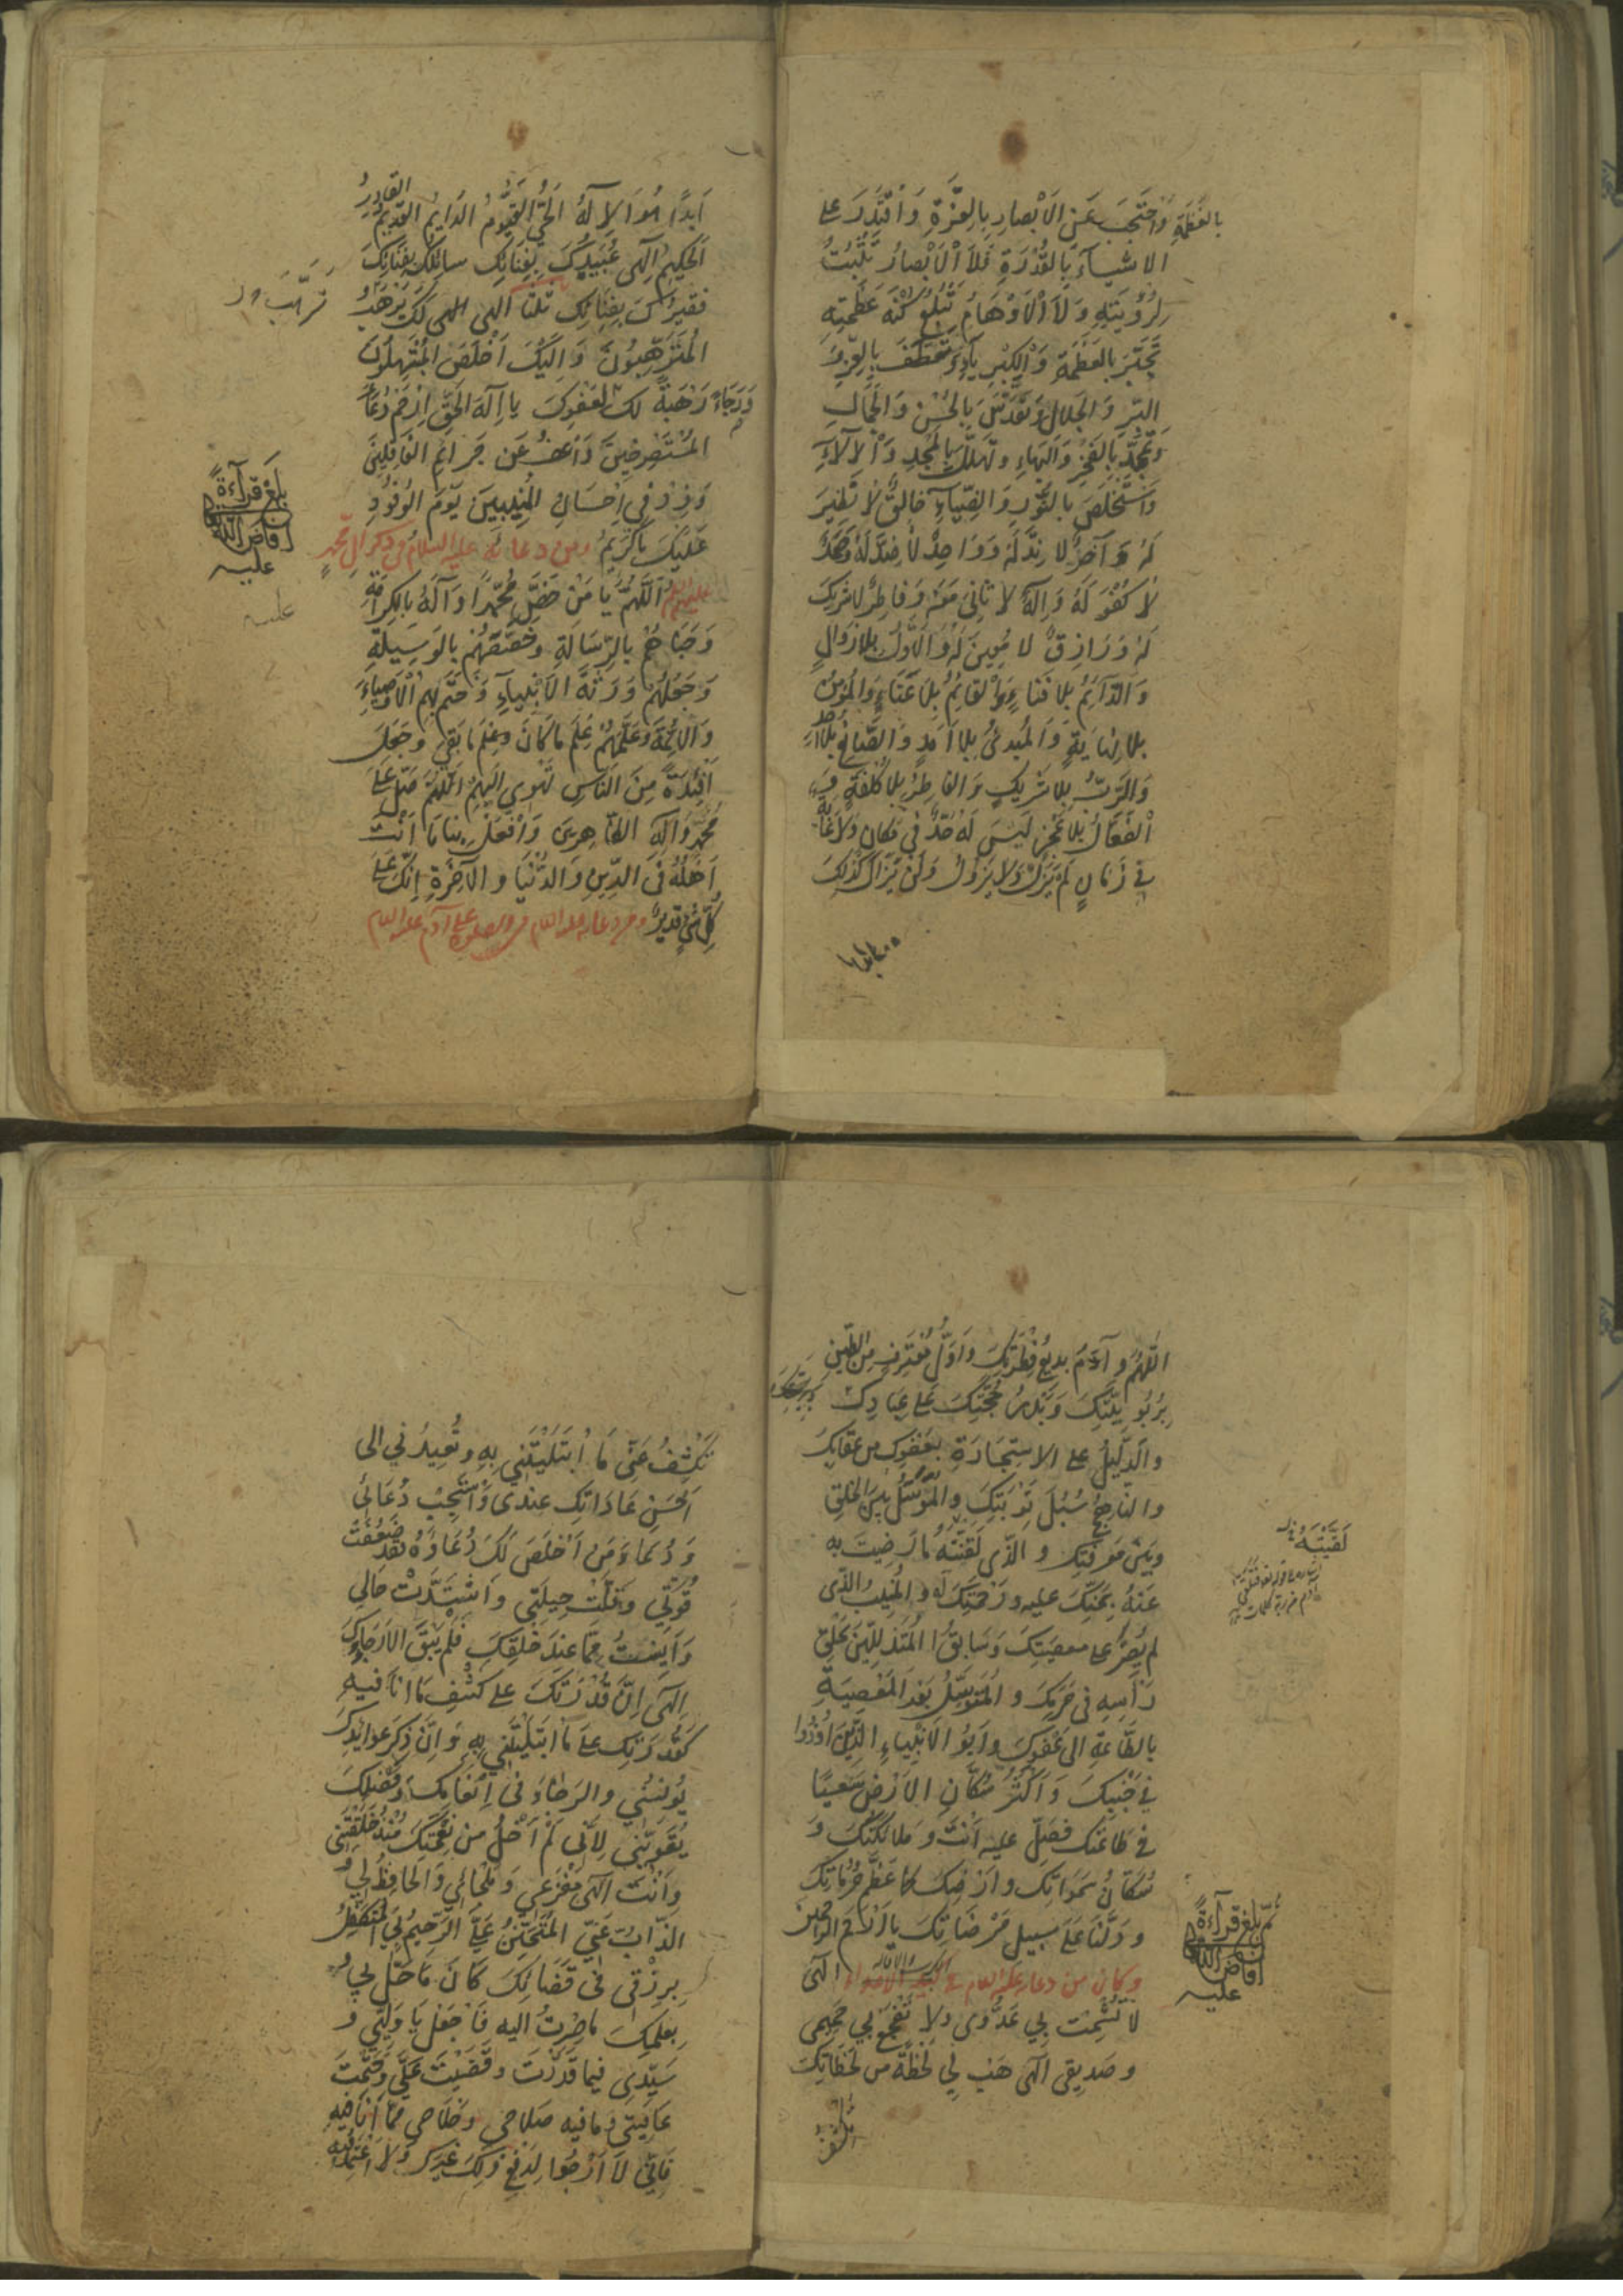 بِالْعَظَمَةِ وَاحْتَجَبَ عَنِ الْاَبْصارِ بِالْعِزَّةِ وَاقْتَدَرَ عَلى
الاشياءَ بِالْقُدْرَةِ فَلاَ الْاَبْصارُ تَثْبُتُ
لِرُؤْيَتِهِ وَلاَ الْاَوْهامُ تَبْلُغُ كُنْهَ عَظَمَتِهِ
تَجَبَّرَ بِالْعَظَمَةِ وَالْكِبْرِياءِ وَتَعَطَّفَ بِالْعِزِّ وَ
البِرِّ وَالْجَلالِ وَتَقَدَّسَ بِالْحُسْنِ وَالْجَمالِ
وَتَمَجَّدَ بِالْفَخْرِ وَالْبَهاءِ وَتَهَلَّلَ بِالْمَجْدِ وَالْآلاءِ
وَاسْتَخْلَصَ بِالنُّورِ وَالضِّياءِ خالِقٌ لا نَظيرَ
لَهُ وَآخِرٌ لا نِدَّ لَهُ وَواحِدٌ لا ضِدَّ لَهُ وَصَمَدٌ
لا كُفْوَ لَهُ وَاِلهٌ لا ثانِيَ مَعَهُ وَفاطِرٌ لا شَريكَ
لَهُ وَرازِقٌ لا مُعينَ لَهُ وَالْاَوَّلُ بِلا زَوالٍ
وَالدّائِمُ بِلا فَناءٍ وَالْقائِمُ بِلا عَناءٍ وَالْمُؤْمِنُ
بلا نِهايَةٍ وَالْمُبْدِئُ بِلا اَمَدٍ وَالصّانِعُ بِلا اَحَدٍ
وَالرَّبُّ بِلا شَريكٍ وَالفاطِرُ بِلا كُلْفَةٍ وَ
الْفَعّالُ بِلا عَجْزٍ لَيْسَ لَهُ حَدٌّ في مَكانٍ وَلا غايَةٌ
في زَمانٍ لَمْ يَزَلْ وَلا يَزُولُ وَلَنْ يَزالَ كَذلِكَ
اَبَدًا هُوَ الْاِلهُ الْحَيُّ الْقَيُّومُ الدّايِمُ القَديمُ القادِرُ
الْحَكيمُ اِلهي عُبَيْدُكَ بِفِنائِكَ سائِلُكَ بِفِنائِكَ
فَقيرُكَ بِفِنائِكَ ثلثا الهى الهى لَكَ يَرْهَبُ
الْمُتَرَهِّبُونَ وَاِلَيْكَ اَخْلَصَ الْمُبْتَهِلُونَ
رَهْبَةً لَكَ وَرَجاءً لِعَفْوِكَ يا اِلهَ الْحَقِّ ارْحَمْ دُعاءَ
الْمُسْتَصْرِخينَ وَاعْفُ عَنْ جَرائِمِ الْغافِلينَ
وَزِدْ في اِحْسانِ الْمُنيبينَ يَوْمَ الْوُفُودِ
عَلَيْكَ يا كَريمُ ومن دعائه عليه السلام في ذكر ال محمد
عليهم السلام اَللّهُمَّ يا مَنْ خَصَّ مُحَمَّدًا وَآلَهُ بِالْكَرامَةِ
وَحَباهُمْ بِالرِّسالَةِ وَخَصَّصَهُمْ بِالْوَسيلَةِ
وَجَعَلَهُمْ وَرَثَةَ الْاَنْبِياءِ وَخَتَمَ بِهِمُ الْاَوْصِياءَ
وَالْاَئِمَّةَ وَعَلَّمَهُمْ عِلْمَ ما كانَ وَعِلْمَ ما بَقِيَ وَجَعَلَ
اَفْئِدَةً مِنَ النّاسِ تَهْوي اِلَيْهِمْ اَللّهُمَّ صَلِّ عَلى
مُحَمَّدٍ وَآلِهِ الطّاهِرينَ وَافْعَلْ بِنا ما اَنْتَ
اَهْلُهُ فِي الدّينِ وَالدُّنْيا وَالْآخِرَةِ اِنَّكَ عَلى
كُلِّ شَيْءٍ قَديرٌ ومن دعائه عليه السلام في الصلوة على آدم عليه السلام
بَلَغَ قِراءَةً
اَفاضَ اللّهُ
عليه
عليه
اللّهُمَّ وَآدَمُ بَديعُ فِطْرَتِكَ وَاَوَّلُ مُعْتَرِفٍ مِنَ الطّينِ
بِرُبُوبِيَّتِكَ وَبَدْرُ حُجَّتِكَ عَلى عِبادِكَ وَبَرِيَّتِكَ
وَالدَّليلُ على الاِسْتِجارَةِ بِعَفْوِكَ من عِقابِكَ
وَالنّاهِجُ سُبُلَ تَوْبَتِكَ وَالْمُوَسَّلُ بَيْنَ الْخَلْقِ
وَبَيْنَ مَعْرِفَتِكَ وَالَّذى لَقَّنْتَهُ ما رَضيتَ بِهِ
عَنْهُ بِمَنِّكَ عليه وَرَحْمَتِكَ لَهُ وَالْمُنيبُ الَّذى
لم يُصِرَّ على معصيتك وَسابِقُ الْمُتَذَلِّلينَ بِحَلْقِ
رَأْسِهِ فى حَرَمِكَ وَالْمُتَوَسِّلُ بَعْدَ الْمَعْصِيَةِ
بِالطّاعَةِ الى عَفْوِكَ وَاَبُو الْاَنْبِياءِ الَّذينَ اُوذُوا
فى جَنْبِكَ وَاَكْثَرُ سُكّانِ الْاَرْضِ سَعْيًا
فى طاعَتِكَ فَصَلِّ عليه اَنْتَ وَمَلائِكَتُكَ وَ
سُكّانُ سَمواتِكَ وَاَرْضِكَ كَما عَظَّمَ حُرُماتِكَ
وَدَلَّنا عَلى سَبيلِ مَرْضاتِكَ يا اَرْحَمَ الرّاحِمينَ
وكان من دعائه عليه السلام في الكرب والاقالة الهى
لا تُشْمِتْ بي عَدُوّى وَلا تَفْجَعْ بي حَميمى
وَصَديقى الهى هَبْ لي لَحْظَةً من لَحَظاتِكَ
لَقَّيْتَهُ
ثُمَّ بَلَغَ قِراءَةً
اَفاضَ اللّهُ
عليه
تَكْشِفُ عَنّى ما ابْتَلَيْتَني بِهِ وَتُعيدُني الى
اَحْسَنِ عاداتِكَ عِنْدى وَاسْتَجِبْ دُعائى
وَدُعاءَ مَنْ اَخْلَصَ لَكَ دُعاءَهُ فَقَدْ ضَعُفَتْ
قُوَّتي وَقَلَّتْ حيلَتي وَاشْتَدَّتْ حالي
وَاَيِسْتُ مِمّا عِنْدَ خَلْقِكَ فَلَمْ يَبْقَ اِلّا رَجاؤُكَ
اِلهى اِنَّ قُدْرَتَكَ على كَشْفِ ما اَنَا فيهِ
كَقُدْرَتِكَ عَلى ما ابْتَلَيْتَني بِهِ وَاِنَّ ذِكْرَ عَوائِدِكَ
يُونِسُني وَالرَّجاءَ فى اِنْعامِكَ وَفَضْلِكَ
يُقَوّيني لِاَنّي لَمْ اَخْلُ مِنْ نِعْمَتِكَ مُنْذُ خَلَقْتَني
وَاَنْتَ الهى مَفْزَعي وَمَلْجائي وَالْحافِظُ لي وَ
الذّابُّ عَنّي الْمُتَحَنِّنُ عَلَيَّ الرَّحيمُ بي الْمُتَكَفِّلُ
بِرِزْقى فى قَضائِكَ كانَ ما حَلَّ بي وَ
بِعِلْمِكَ ما صِرْتُ اليه فَاجْعَلْ يا وَلِيّي وَ
سَيِّدى فيما قَدَّرْتَ وَقَضَيْتَ عَلَيَّ وَحَتَمْتَ
عافِيَتي وَما فيه صَلاحي وَخَلاصي مِمّا اَنَا فيهِ
فَاِنّي لا اَرْجُوا لِدَفْعِ ذلِكَ غَيْرَكَ وَلا اَعْتَمِدُ فيهِ